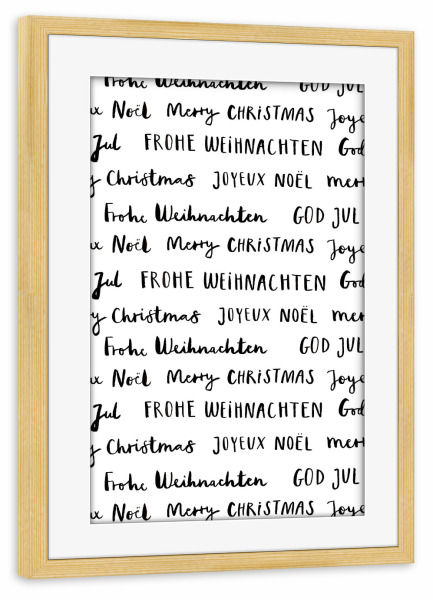 Frohe Weihnachten GOD JUL
ux Noël Merry CHRISTMAS Joye
Jul FROHE WEIHNACHTEN God
y Christmas JOYEUX NOËL merr
Frohe Weihnachten GOD JUL
ux Noël Merry CHRISTMAS Joye
Jul FROHE WEIHNACHTEN God
y Christmas JOYEUX NOËL mer
Frohe Weihnachten GOD JUL
ux Noël Merry CHRISTMAS Joye
Jul FROHE WEIHNACHTEN God
y Christmas JOYEUX NOËL merr
Frohe Weihnachten GOD JUL
ux Noël Merry CHRISTMAS Joye